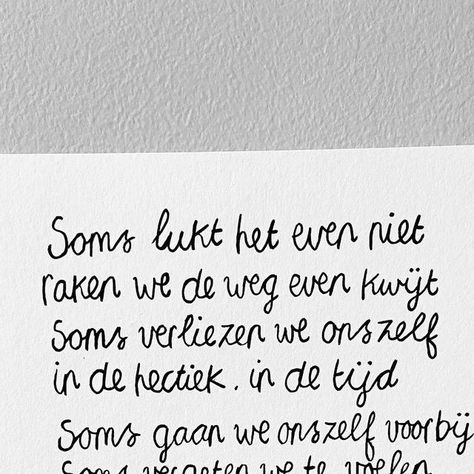 Soms lukt het even niet
raken we de weg even kwijt
Soms verliezen we onszelf
in de hectiek. in de tijd
Soms gaan we onszelf voorbij
Soms vergeten we te voelen